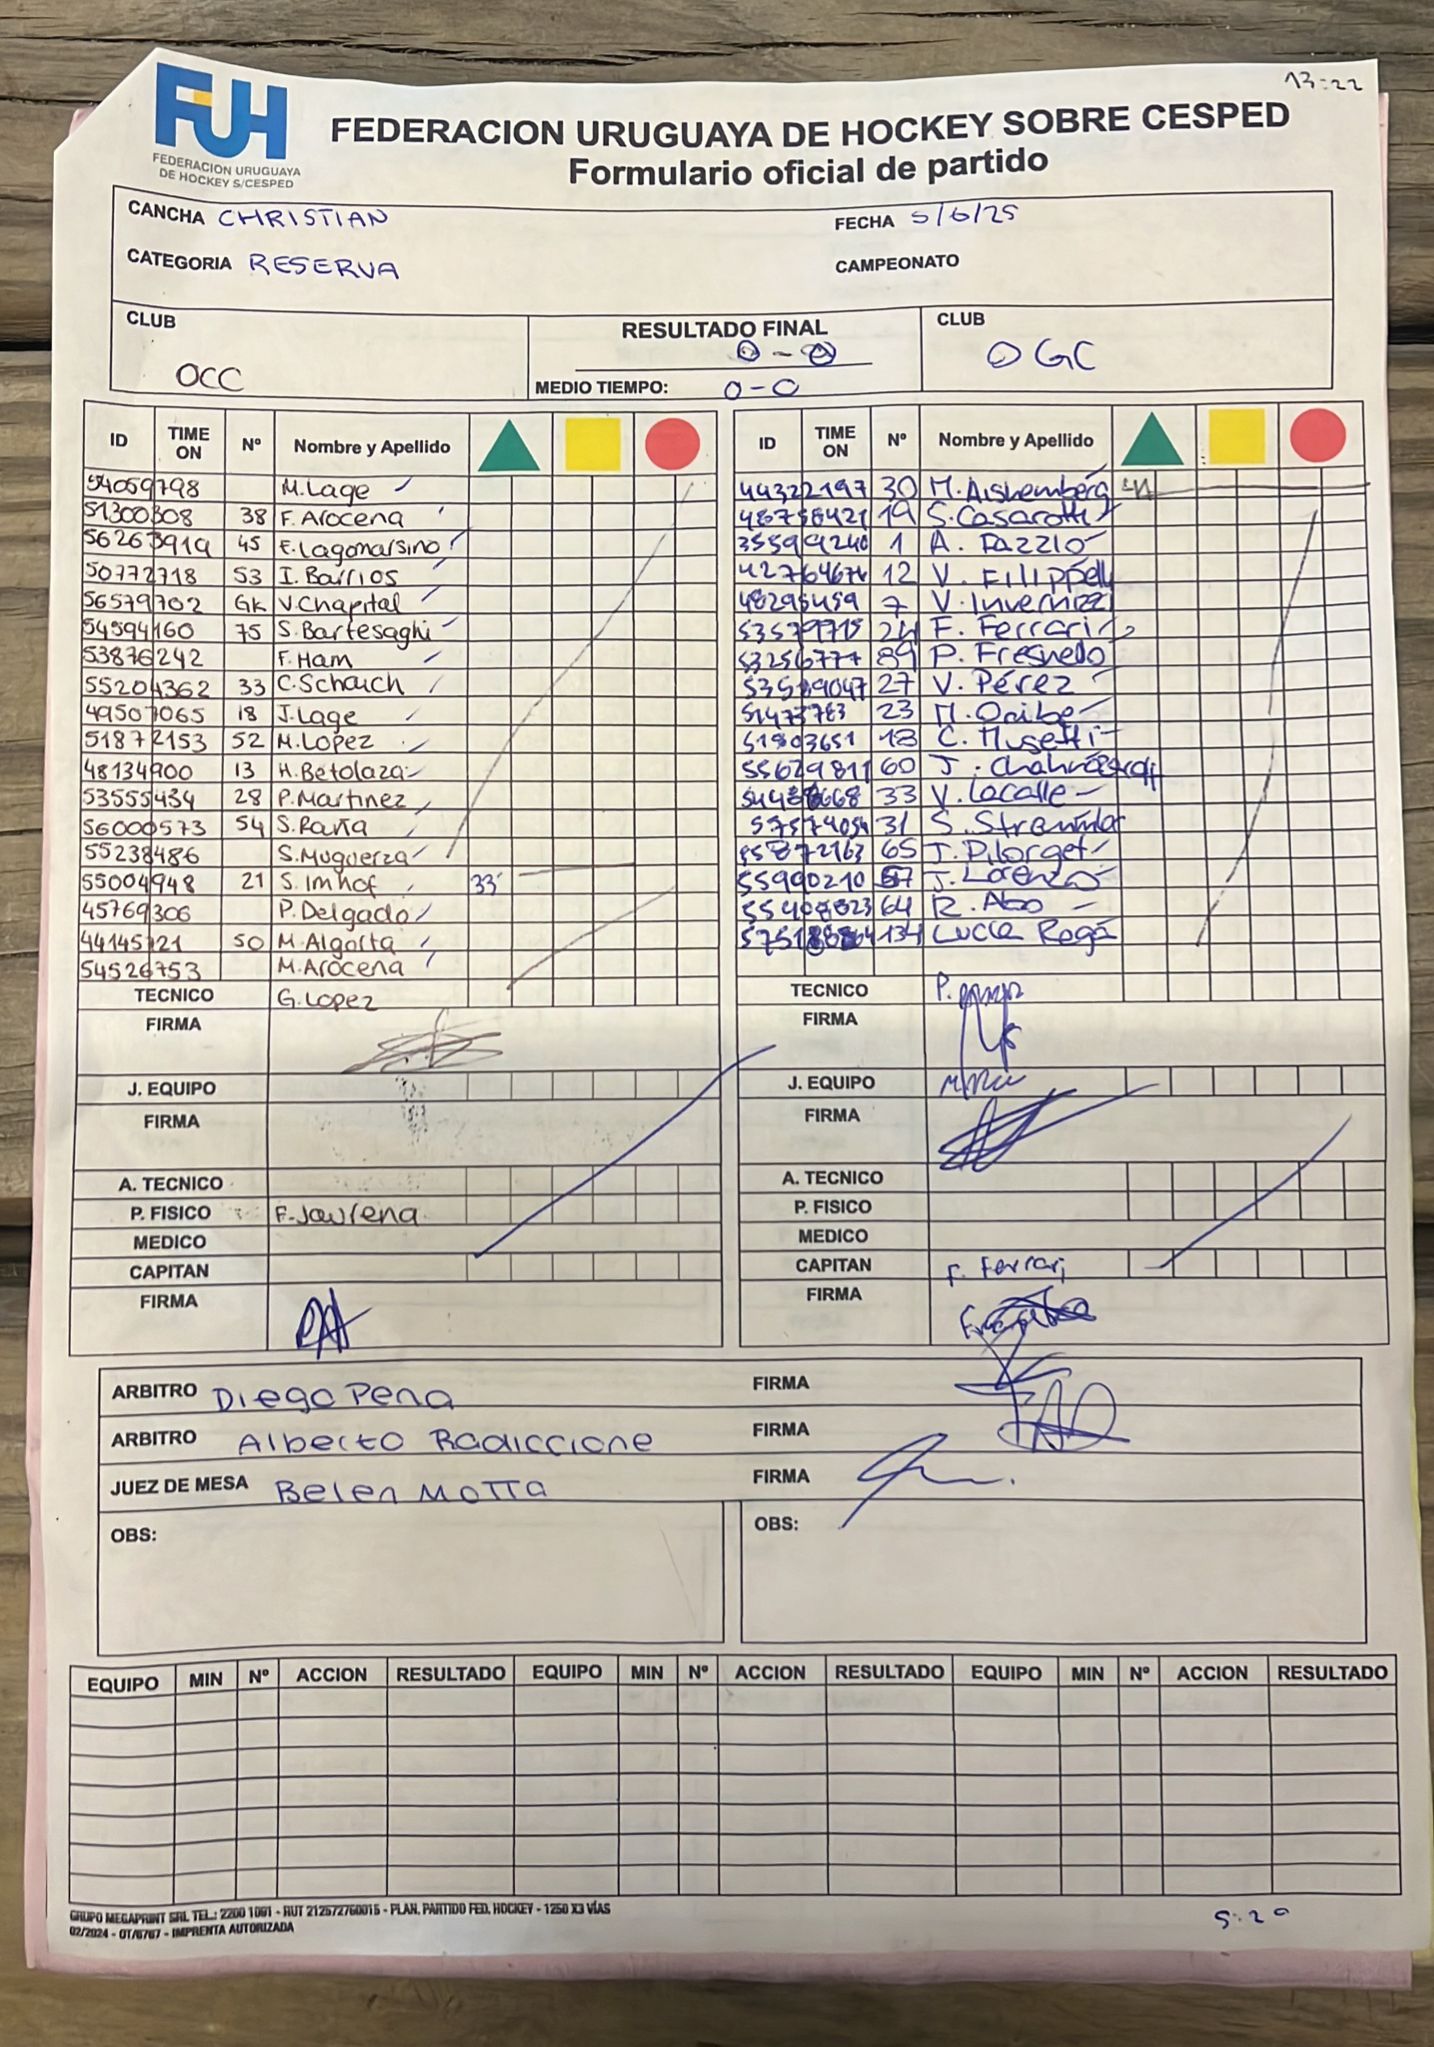 13:22
FUH
FEDERACION URUGUAYA
DE HOCKEY S/CESPED
FEDERACION URUGUAYA DE HOCKEY SOBRE CESPED
Formulario oficial de partido
CANCHA CHRISTIAN FECHA 5/6/25
CATEGORIA RESERVA CAMPEONATO
CLUB OCC
RESULTADO FINAL 0-0
MEDIO TIEMPO: 0-0
CLUB OGC
ID TIME ON Nº Nombre y Apellido
54059798 M. Lage
51300308 38 F. Arocena
56263919 45 E. Lagomarsino
50772718 53 I. Barrios
56579702 GK V. Chapital
54594160 75 S. Bartesaghi
53876242 F. Ham
55204362 33 C. Schaich
49507065 18 J. Lage
51872153 52 M. Lopez
48134900 13 H. Betolaza
53555434 28 P. Martinez
56000573 54 S. Raña
55238486 S. Muguerza
55004948 21 S. Imhof 33'
45769306 P. Delgado
44145121 50 M. Algorta
54526753 M. Arocena
TECNICO G. Lopez
FIRMA
J. EQUIPO
FIRMA
A. TECNICO
P. FISICO F. Jaurena
MEDICO
CAPITAN
FIRMA
ID TIME ON Nº Nombre y Apellido
44322197 30 M. Aishemberg
48758421 19 S. Casarotti
35599240 1 A. Dazzio
12 V. Filippelli
48295459 7 V. Invernizzi
53579715 24 F. Ferrari
53256777 89 P. Fresnedo
53589047 27 V. Pérez
51473783 23 M. Oribe
51803651 18 C. Musetti
55629811 60 J.
33 V. Lacalle
57574054 31 S.
55872163 65 J. Pilorget
55990210 67 J. Lorenzo
55408823 64 R. Abo
134 Lucca Rega
TECNICO P.
FIRMA
J. EQUIPO
FIRMA
A. TECNICO
P. FISICO
MEDICO
CAPITAN F. Ferrari
FIRMA
ARBITRO Diego Pena FIRMA
ARBITRO Alberto Radiccione FIRMA
JUEZ DE MESA Belen Motta FIRMA
OBS: OBS:
EQUIPO MIN Nº ACCION RESULTADO EQUIPO MIN Nº ACCION RESULTADO EQUIPO MIN Nº ACCION RESULTADO
GRUPO MEGAPRINT SRL TEL.: 2200 1091 - RUT 212572760015 - PLAN. PARTIDO FED. HOCKEY - 1250 X3 VÍAS
02/2024 - OT/6767 - IMPRENTA AUTORIZADA
5:20